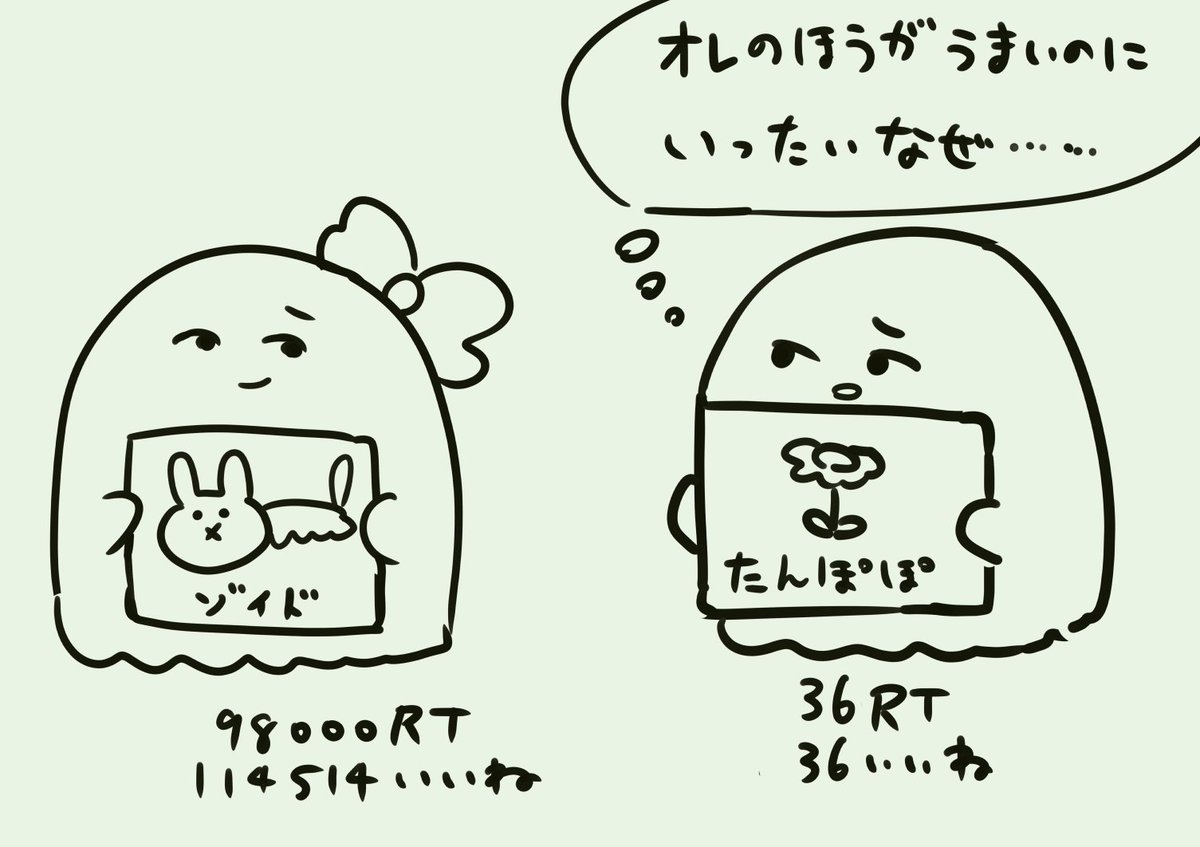 オレのほうがうまいのに
いったいなぜ……
ゾイド
98000RT
114514いいね
たんぽぽ
36RT
36いいね